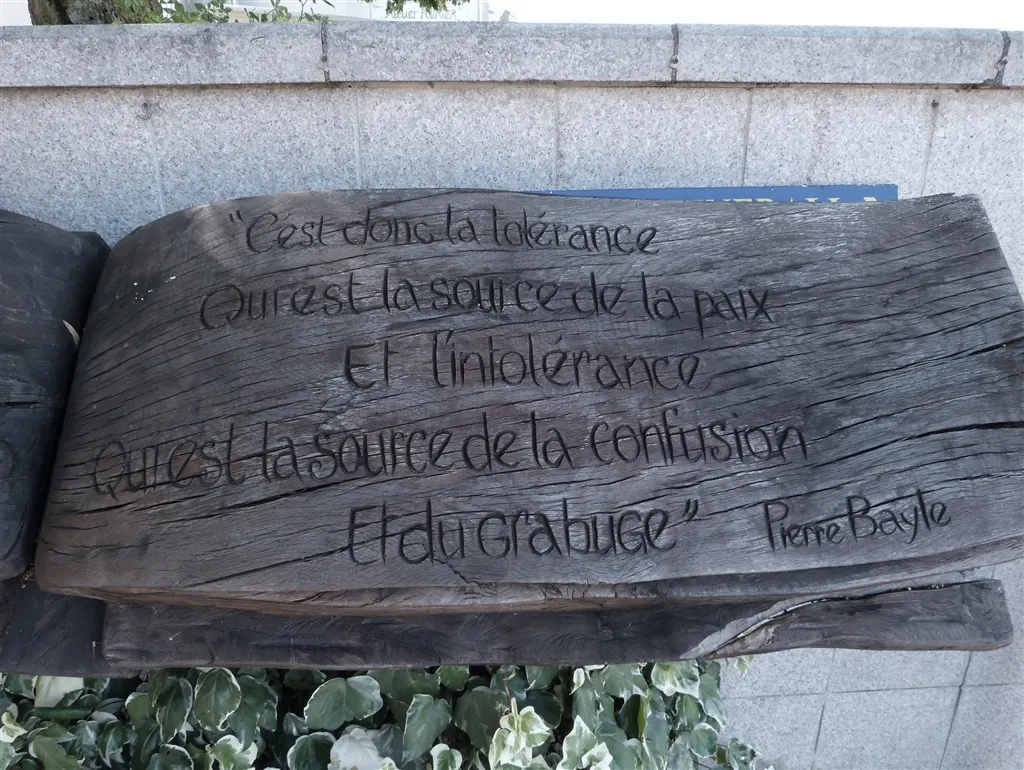 "C'est donc la tolérance
Qui est la source de la paix
Et l'intolérance
Qui est la source de la confusion
Et du grabuge" Pierre Bayle